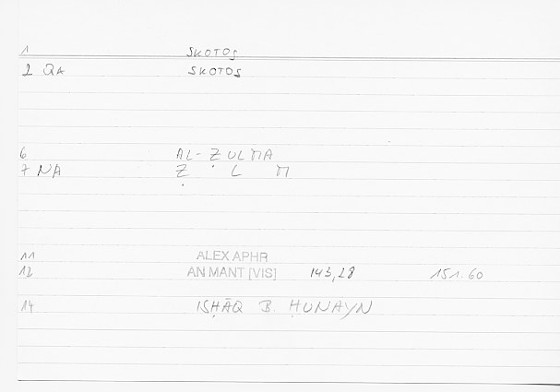 1 SKOTOS
2 QA SKOTOS
6 AL-ẒULMA
7 NA Ẓ L M
11 ALEX APHR
12 AN MANT [VIS] 143,28 151.60
14 ISḤĀQ B. ḤUNAYN